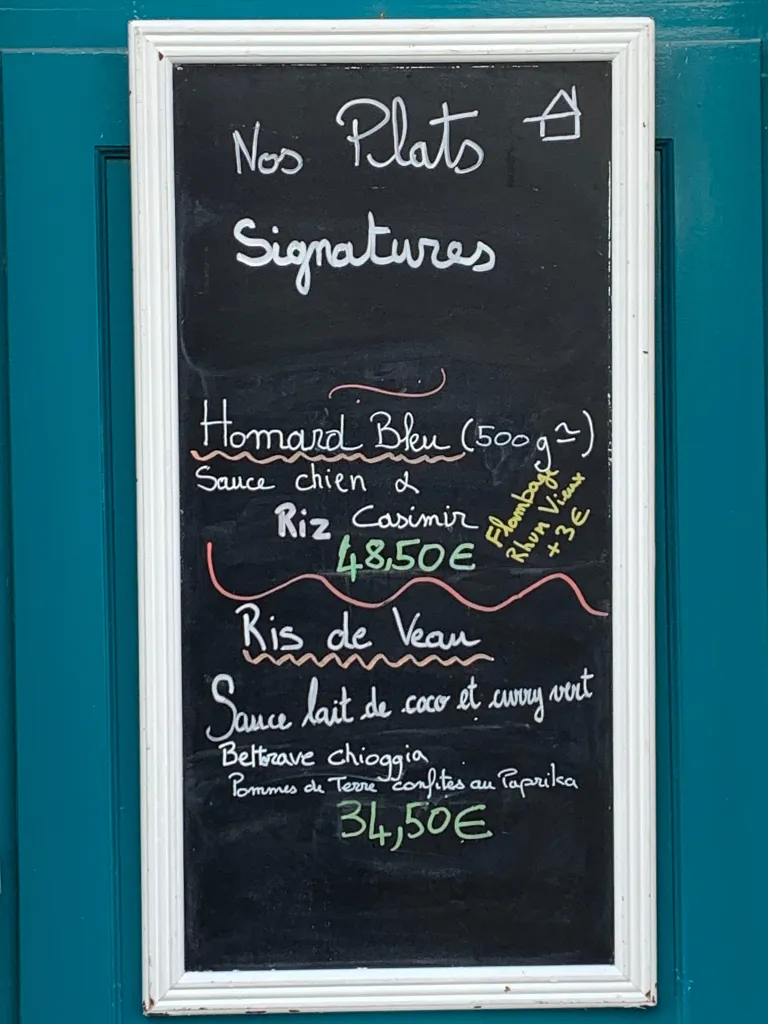 Nos Plats
Signatures
Homard Bleu (500g ≃)
Sauce chien &
Riz Casimir
Flambage
Rhum Vieux
+3€
48,50€
Ris de Veau
Sauce lait de coco et curry vert
Bettrave chioggia
Pommes de Terre confites au Paprika
34,50€